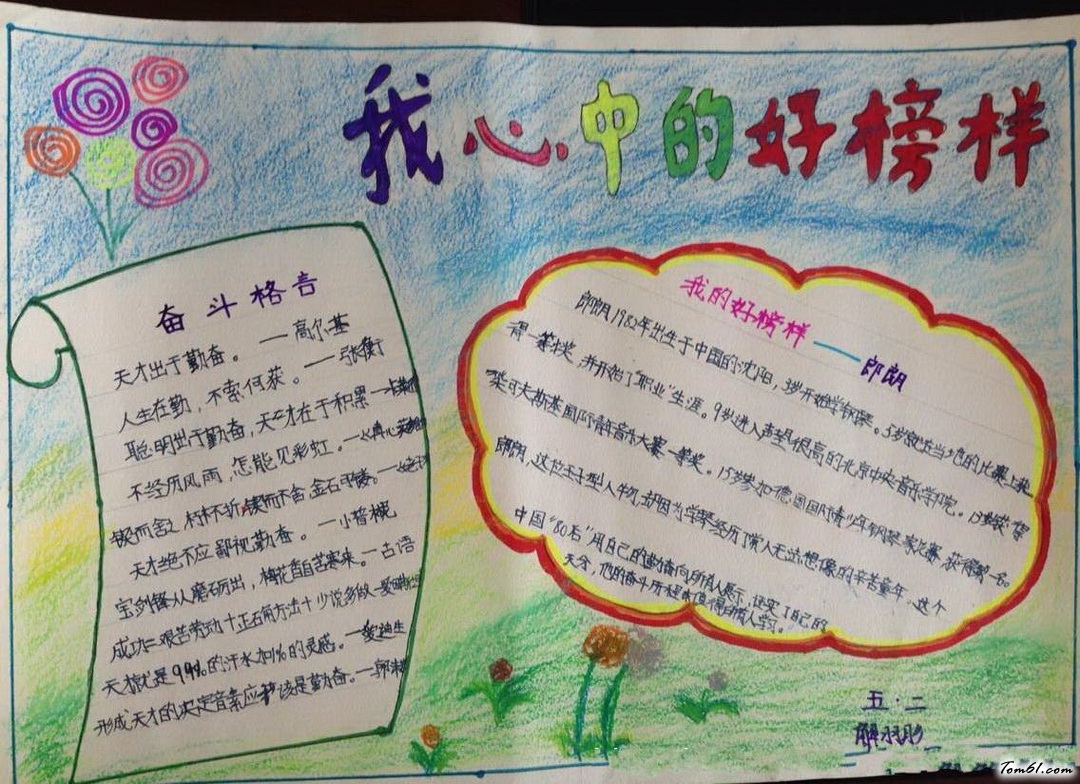 我心中的好榜样
奋斗格言
天才出于勤奋。——高尔基
人生在勤，不索何获。——张衡
聪明出于勤奋，天才在于积累
不经历风雨，怎能见彩虹。
锲而舍之 朽木不折 锲而不舍 金石可镂。
天才绝不应鄙视勤奋。——小普林
宝剑锋从磨砺出，梅花香自苦寒来。——古语
成功=艰苦劳动+正确方法+少说多做
天才就是99%的汗水加1%的灵感。——爱迪生
形成天才的决定音素应该是勤奋。——郭沫
我的好榜样——郎朗
郎朗1982年出生于中国的沈阳，3岁开始学钢琴。5岁就在当地的比赛上
得一等奖，并开始了"职业"生涯。9岁进入声望很高的北京中央音乐学院。
柴可夫斯基国际青年音乐大赛一等奖。15岁参加德国国际青少年钢琴家比赛，获得第一名。
郎朗，这位王子型人物，却因为学琴经历了常人无法想像的辛苦童年，这个
中国"80后"用自己的勤奋向所有人展示，证实了自己的
天分，他的奋斗历程值得所有人学习。
五·二
Tom61.com